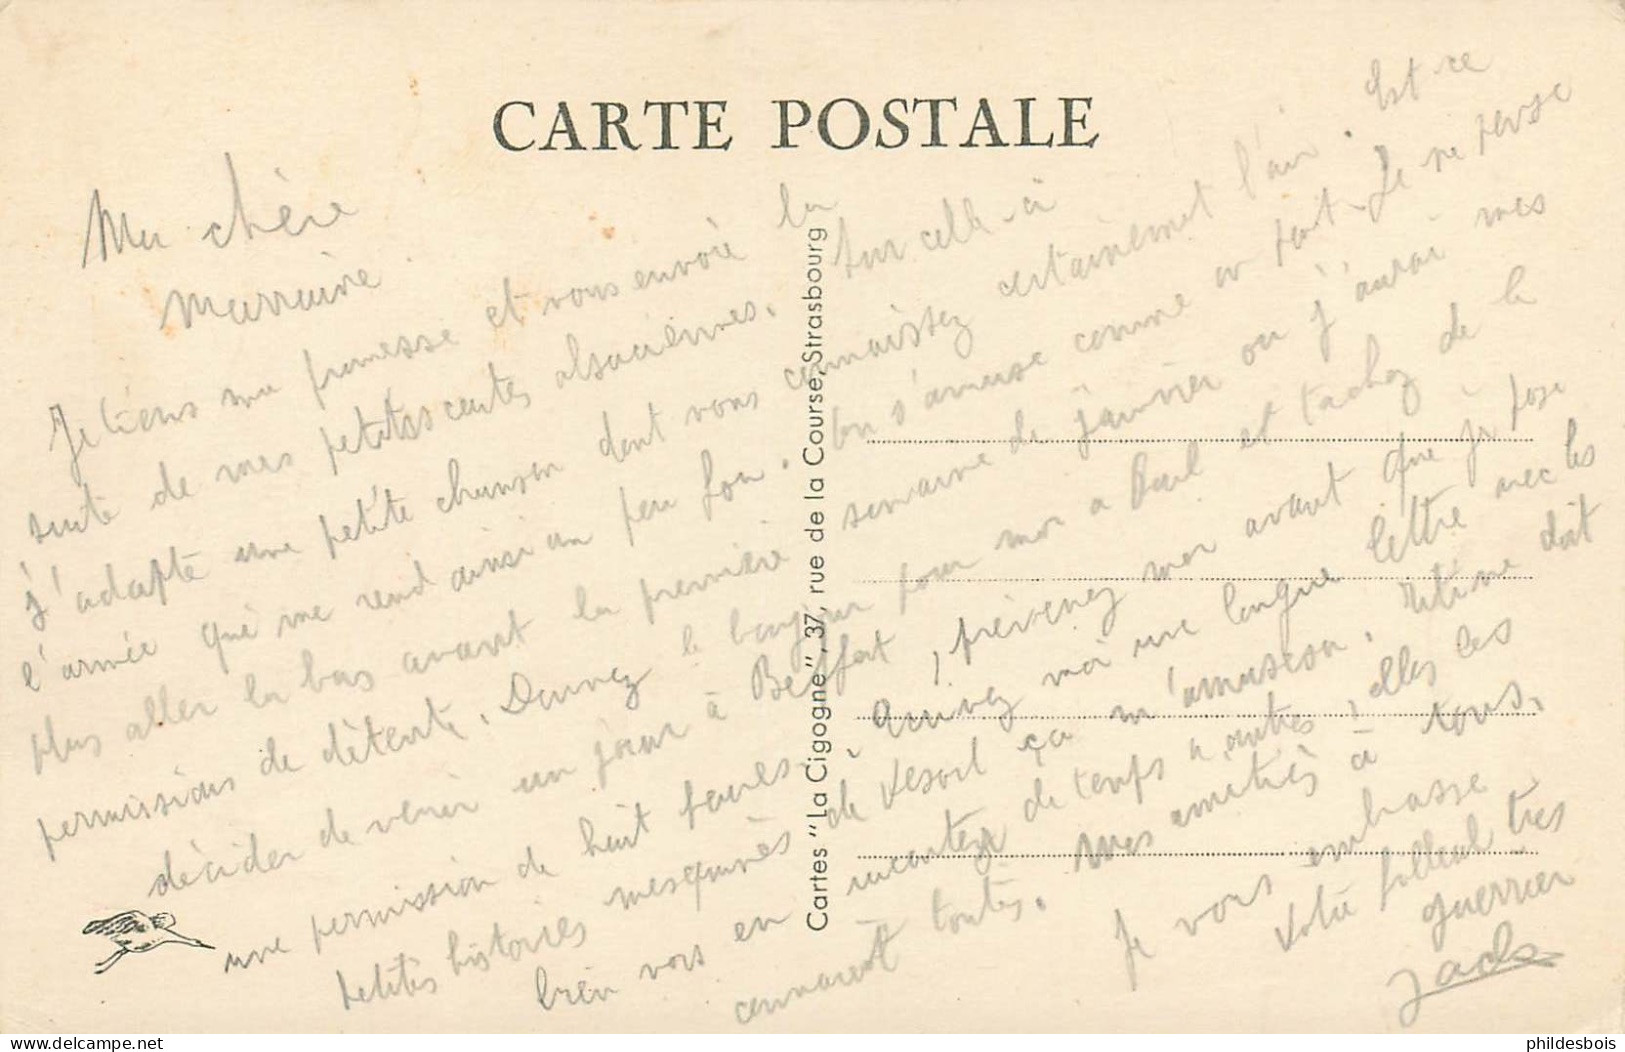 CARTE POSTALE
Ma chère
Marraine
Je tiens ma promesse et vous envoie la
suite de mes petites cartes alsaciennes. Sur celle-ci
j'adapte une petite chanson dont vous connaissez certainement l'air. Est-ce
l'armée qui me rend ainsi un peu fou. On s'amuse comme on peut. Je ne pense
plus aller là bas avant la première semaine de janvier où j'aurai mes
permissions de détente. Donnez le bonjour pour moi à Paul et tachez de le
décider de venir un jour à Belfort, prévenez moi avant que je pose
une permission de huit heures. Ecrivez moi une longue lettre avec les
petites histoires mesquines de Vesoul ça m'amusera. Titine doit
bien vous en raconter de temps à autres, elles les
connaient toutes. Mes amitiés à tous.
Je vous embrasse
Votre filleul très
guerrier
Jack
Cartes "La Cigogne", 37, rue de la Course, Strasbourg
phildesbois
www.delcampe.net